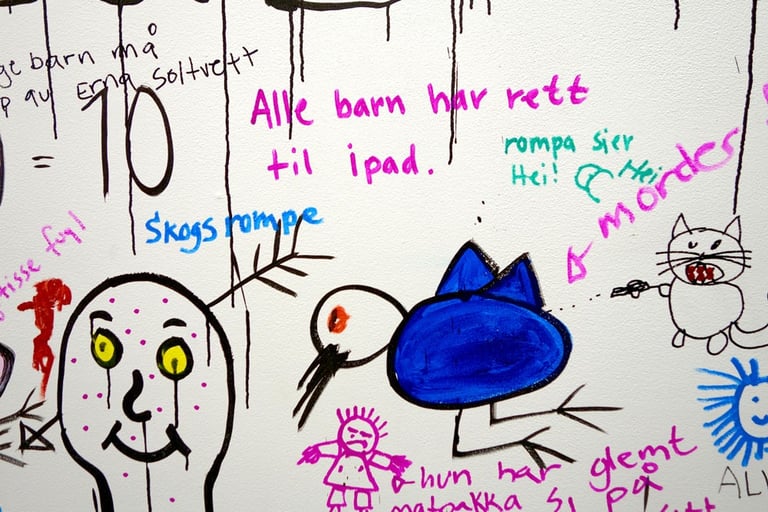 barn må
av Erna Soltvett
= 10
Alle barn har rett
til ipad.
rompa sier
Hei! Hei
morder
Skogsrompe
tisse fugl
hun har glemt
matpakka si på